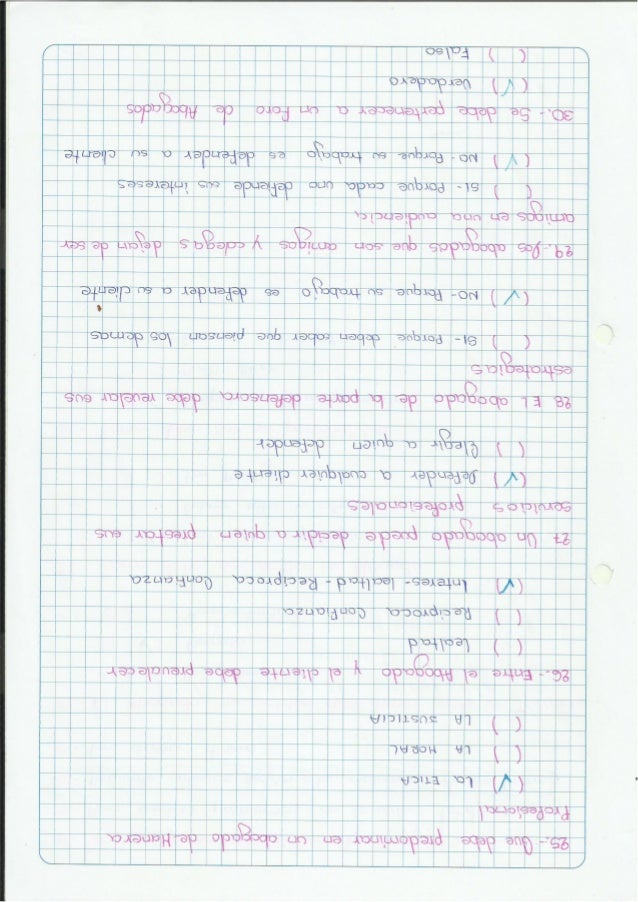 25.- Que debe predominar en un abogado de Manera
Profesional
(√) La ETICA
( ) LA MORAL
( ) LA JUSTICIA
26.- Entre el Abogado y el cliente debe prevalecer
( ) lealtad
( ) Reciproca Confianza
(√) Interes- lealtad - Reciproca Confianza
27 Un abogado puede decidir a quien prestar sus
servicios profesionales
(√) Defender a cualquier cliente
( ) Elegir a quien defender
28 EL abogado de la parte defensora debe revelar sus
estrategias
( ) SI- Porque deben saber que piensan los demas
(√) NO- Porque su trabajo es defender a su cliente
29.- Los abogados que son amigos y colegas dejan de ser
amigos en una audiencia
( ) SI- Porque cada uno defiende sus intereses
(√) NO- Porque su trabajo es defender a su cliente
30.- Se debe pertenecer a un Foro de Abogados
(√) Verdadero
( ) Falso